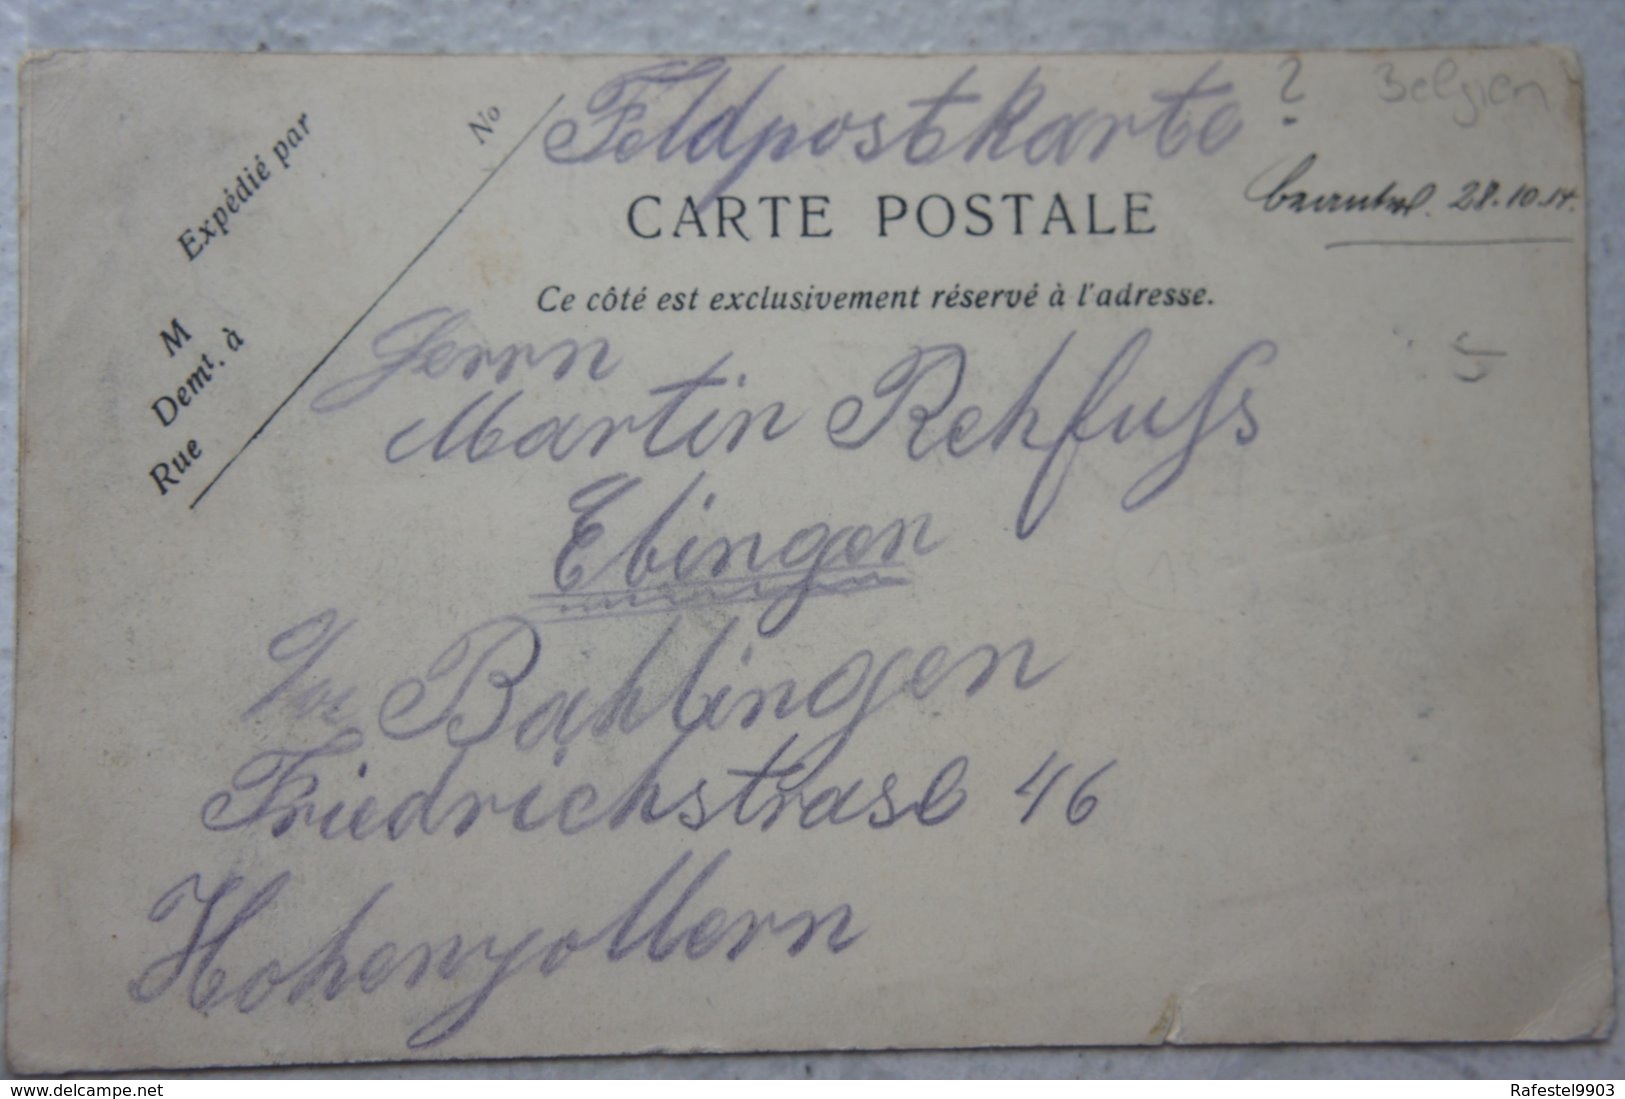 Feldpostkarte ? Belgien
Expédié par
No
CARTE POSTALE
beantw. 28.10.14.
Ce côté est exclusivement réservé à l'adresse.
M
Demt. à
Rue
Herrn
Martin Rehfuss
Ebingen
Bahlingen
Friedrichstrase 46
Hohenzollern
www.delcampe.net
Rafestel9903